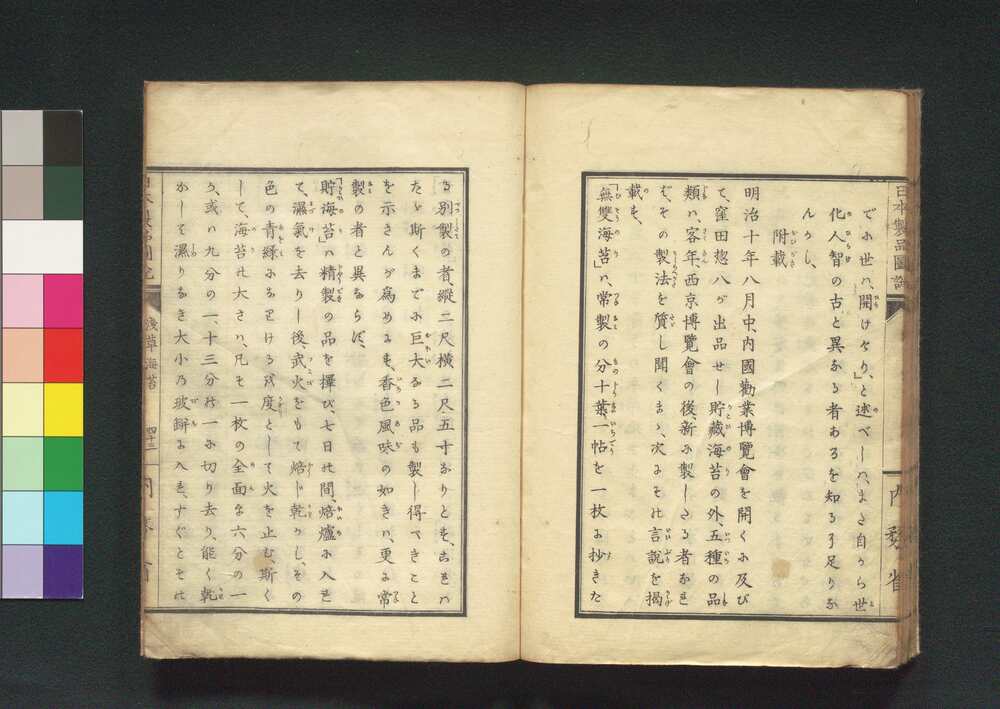 日本製品圖說
内務省
でふ世ハ、開けゲり、と述べーハ、また自から世
化人智の古と異なる者あるを知るゟ足りな
んかし、
附載
明治十年八月中、内國勸業博覽會を開くに及び
て、窪田惣八が出品せし貯蔵海苔の外、五種の品
類ハ、客年、西京博覽會の後、新に製したる者なれ
ば、その製法を質し聞くまゝ、次にその言說を揭
載す、
「無雙海苔」ハ、常製の分十葉、一帖を一枚に抄きた
る別製の者、縱二尺橫二尺五寸なりとす、これハ
たゞ斯くまでに巨大なる品も製し得べきこと
を示さんが爲めにす、香色風味の如きハ、更に常
製の者と異ならず、
「貯海苔」ハ精製の品を擇び、七日の間、焙爐に入れ
て、濕氣を去りし後、武火をもて焙じ乾かし、その
色の青綠になりける終度として火を止む、斯く
して、海苔の大さハ、凡そ一枚の全面な六分の一
か、或ハ九分の一、十三分の一に切り去り、能く乾
かして濕りなき大小の玻缾に入れ、すぐとその
淺草海苔
四十三